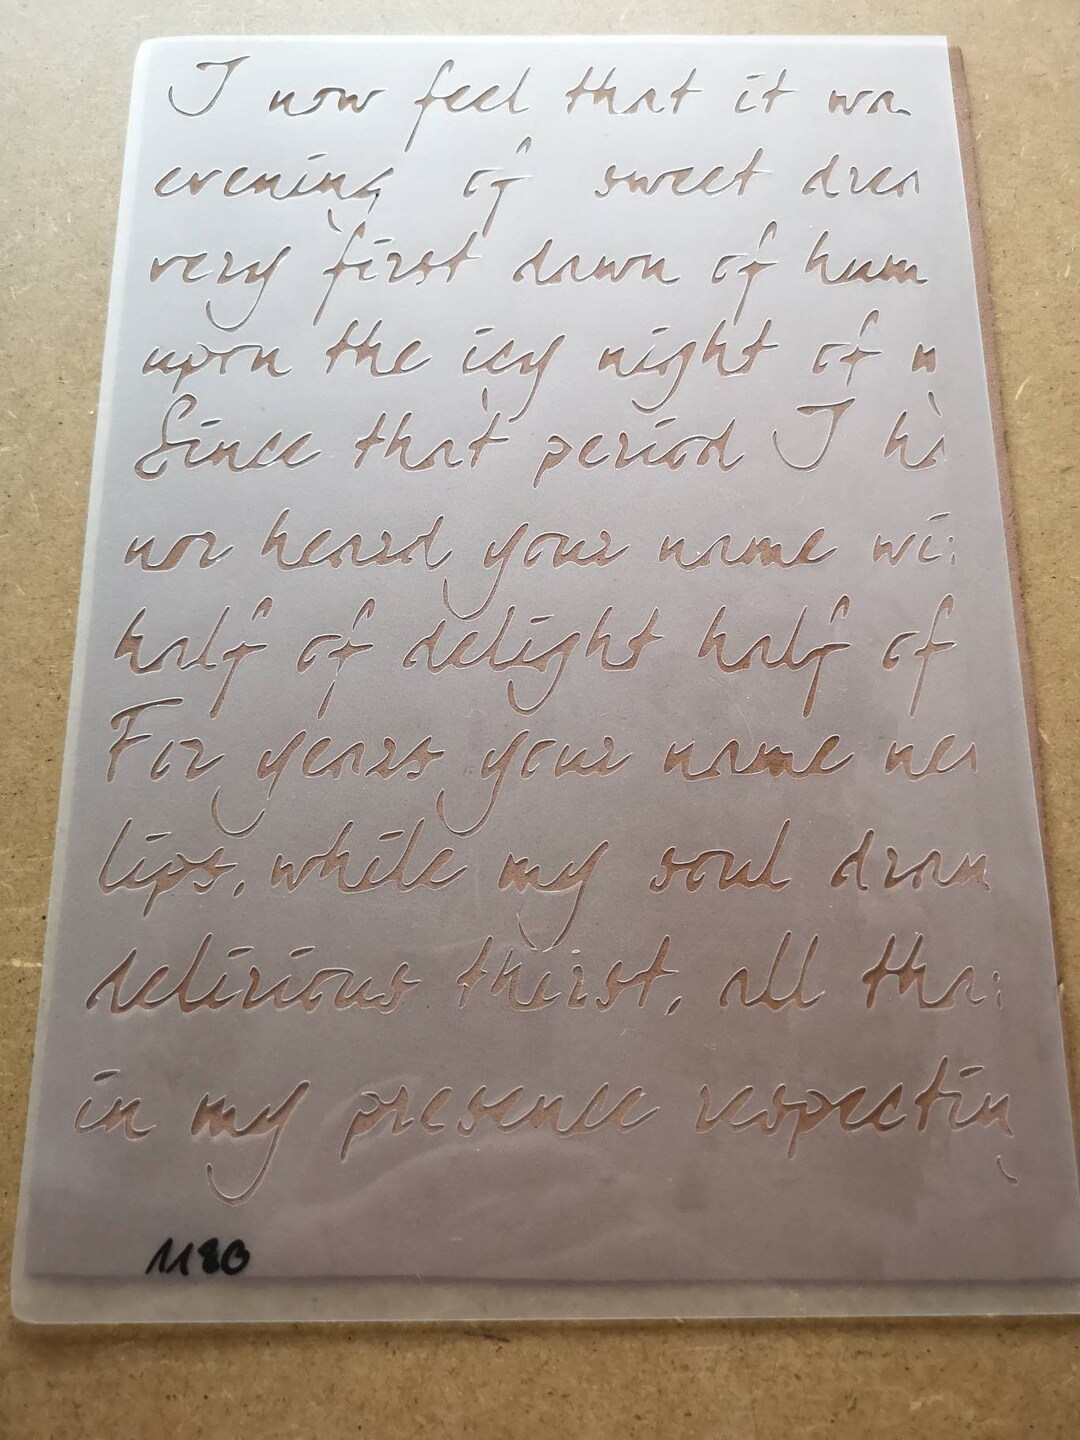 I now feel that it wa
evening of sweet drea
very first dawn of hum
upon the icy night of m
Since that period I ha
nor heard your name wi
half of delight half of
For years your name nev
lips, while my soul dran
delirious thirst, all tha
in my presence respectin
1180